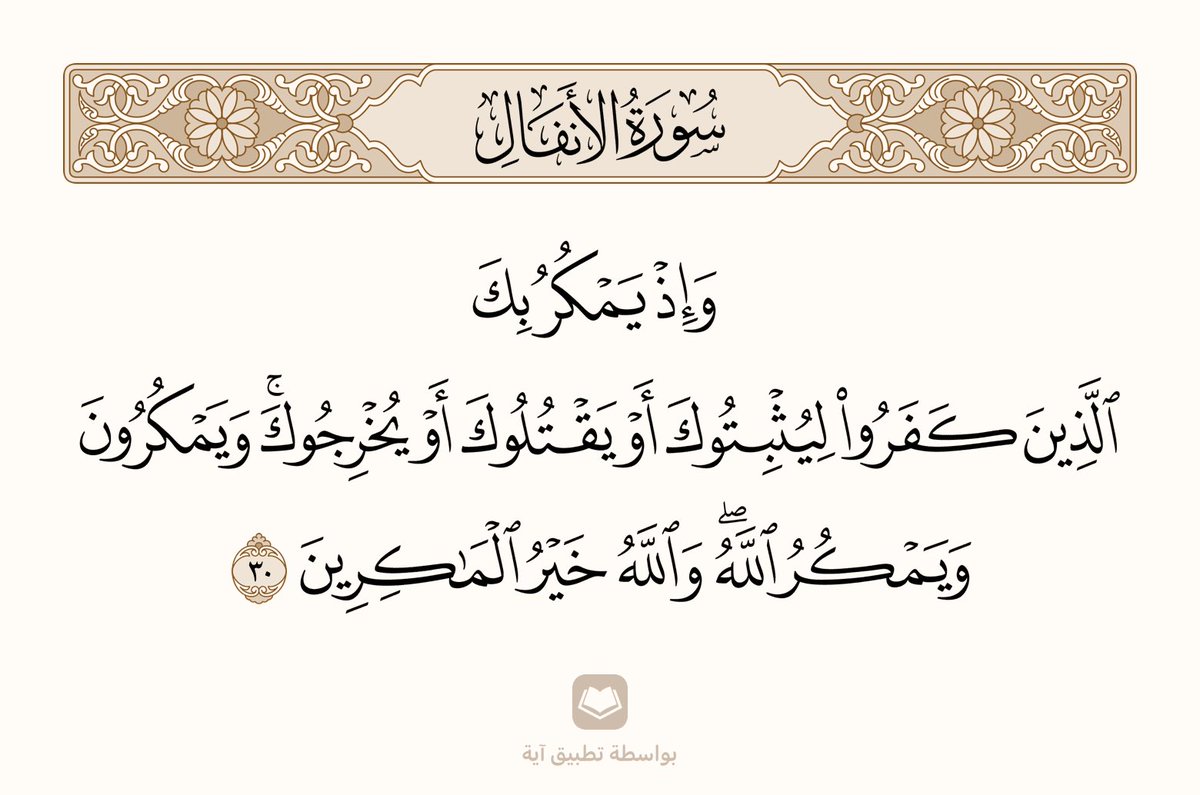 سُورَةُ الأَنفَالِ
وَإِذۡ يَمۡكُرُ بِكَ
ٱلَّذِينَ كَفَرُواْ لِيُثۡبِتُوكَ أَوۡ يَقۡتُلُوكَ أَوۡ يُخۡرِجُوكَۚ وَيَمۡكُرُونَ
وَيَمۡكُرُ ٱللَّهُۖ وَٱللَّهُ خَيۡرُ ٱلۡمَٰكِرِينَ ٣٠
بواسطة تطبيق آية